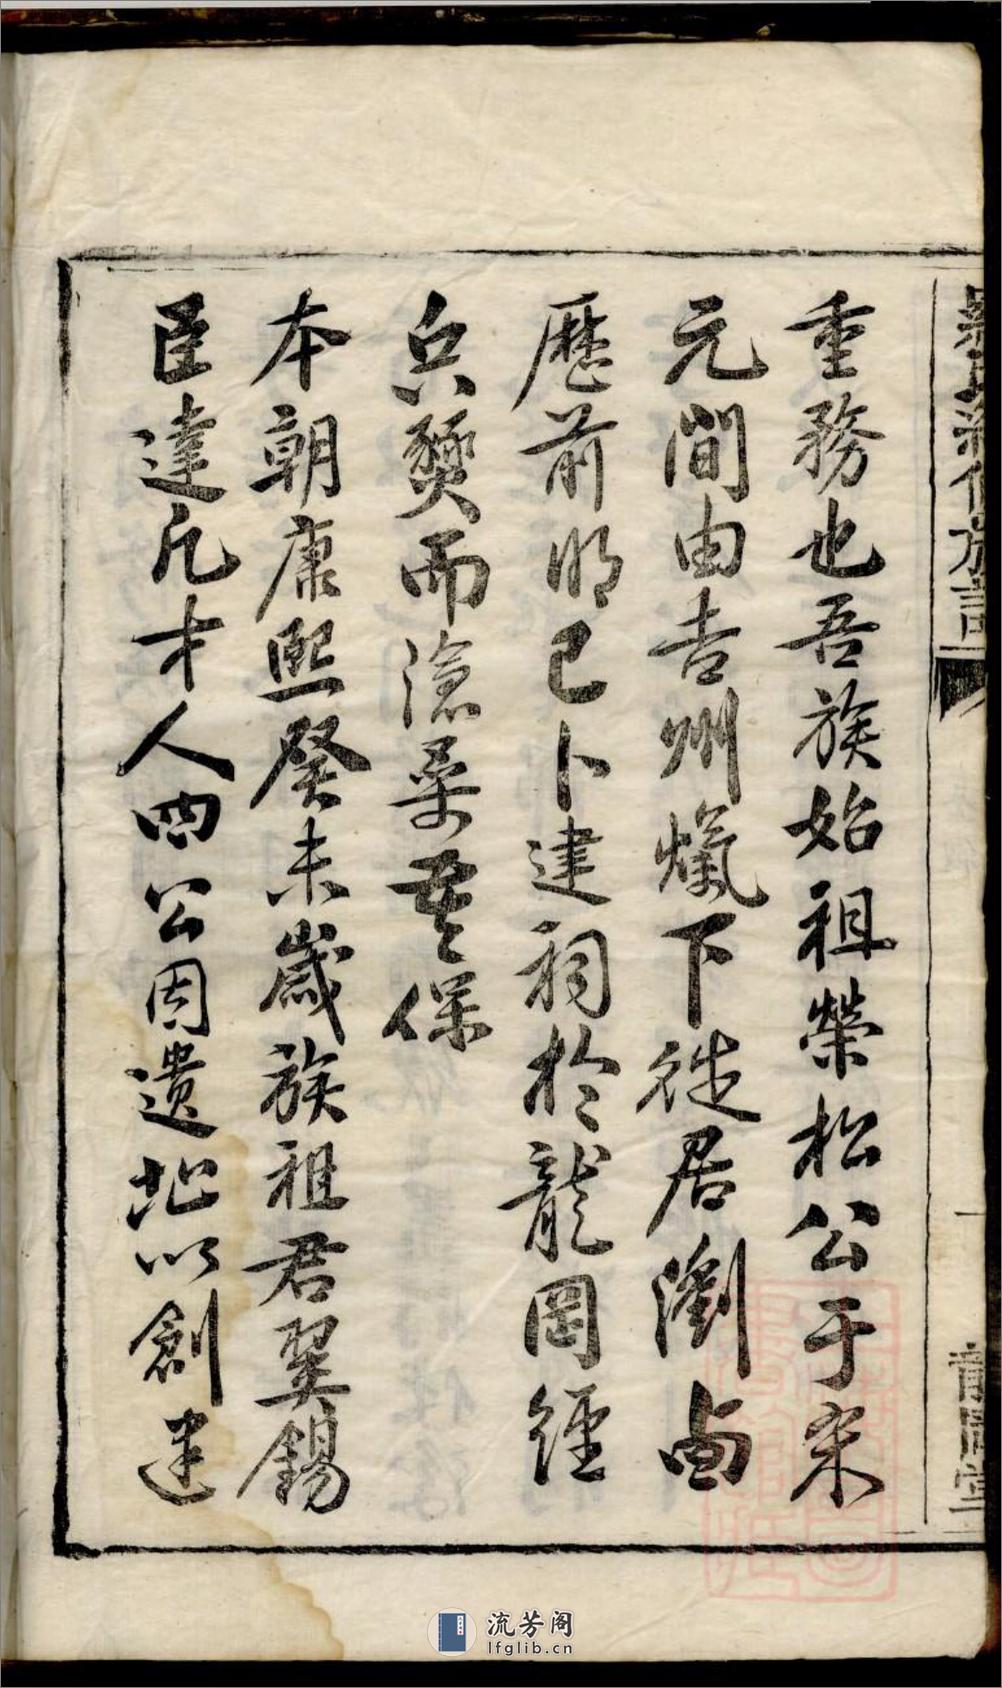 族譜
一
堂
重務也吾族始祖榮松公于宋
元間由吉州下徙居瀏卥
歷前明已卜建祠於龍岡經
兵燹而滄桑莫保
本朝康熙癸未歲族祖君翼錫
臣達凡才人四公因遺址以創建
流芳阁
lfglib.cn